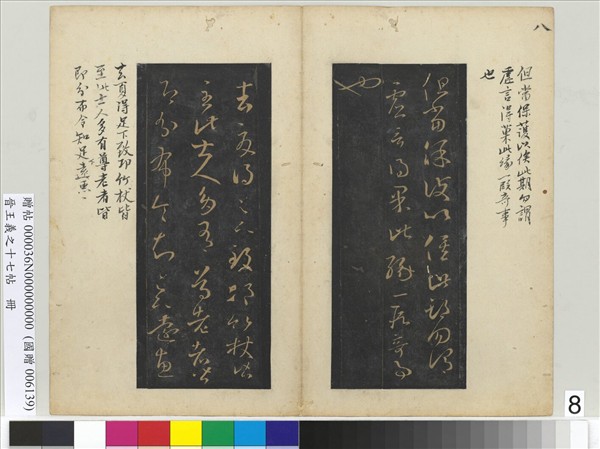 八
但當保護以俟此期勿謂
虛言得果此緣一段奇事
也
但當保護以俟此期勿謂
虛言得果此緣一段奇事
也
去夏得足下致邛竹杖皆
至此士人多有尊老者皆
即分布令知足下遠惠
去夏得足下致邛竹杖皆
至此士人多有尊老者皆
即分布令知足下遠惠
贈帖 000036N000000000 (國贈 006139)
晉王羲之十七帖 冊
8